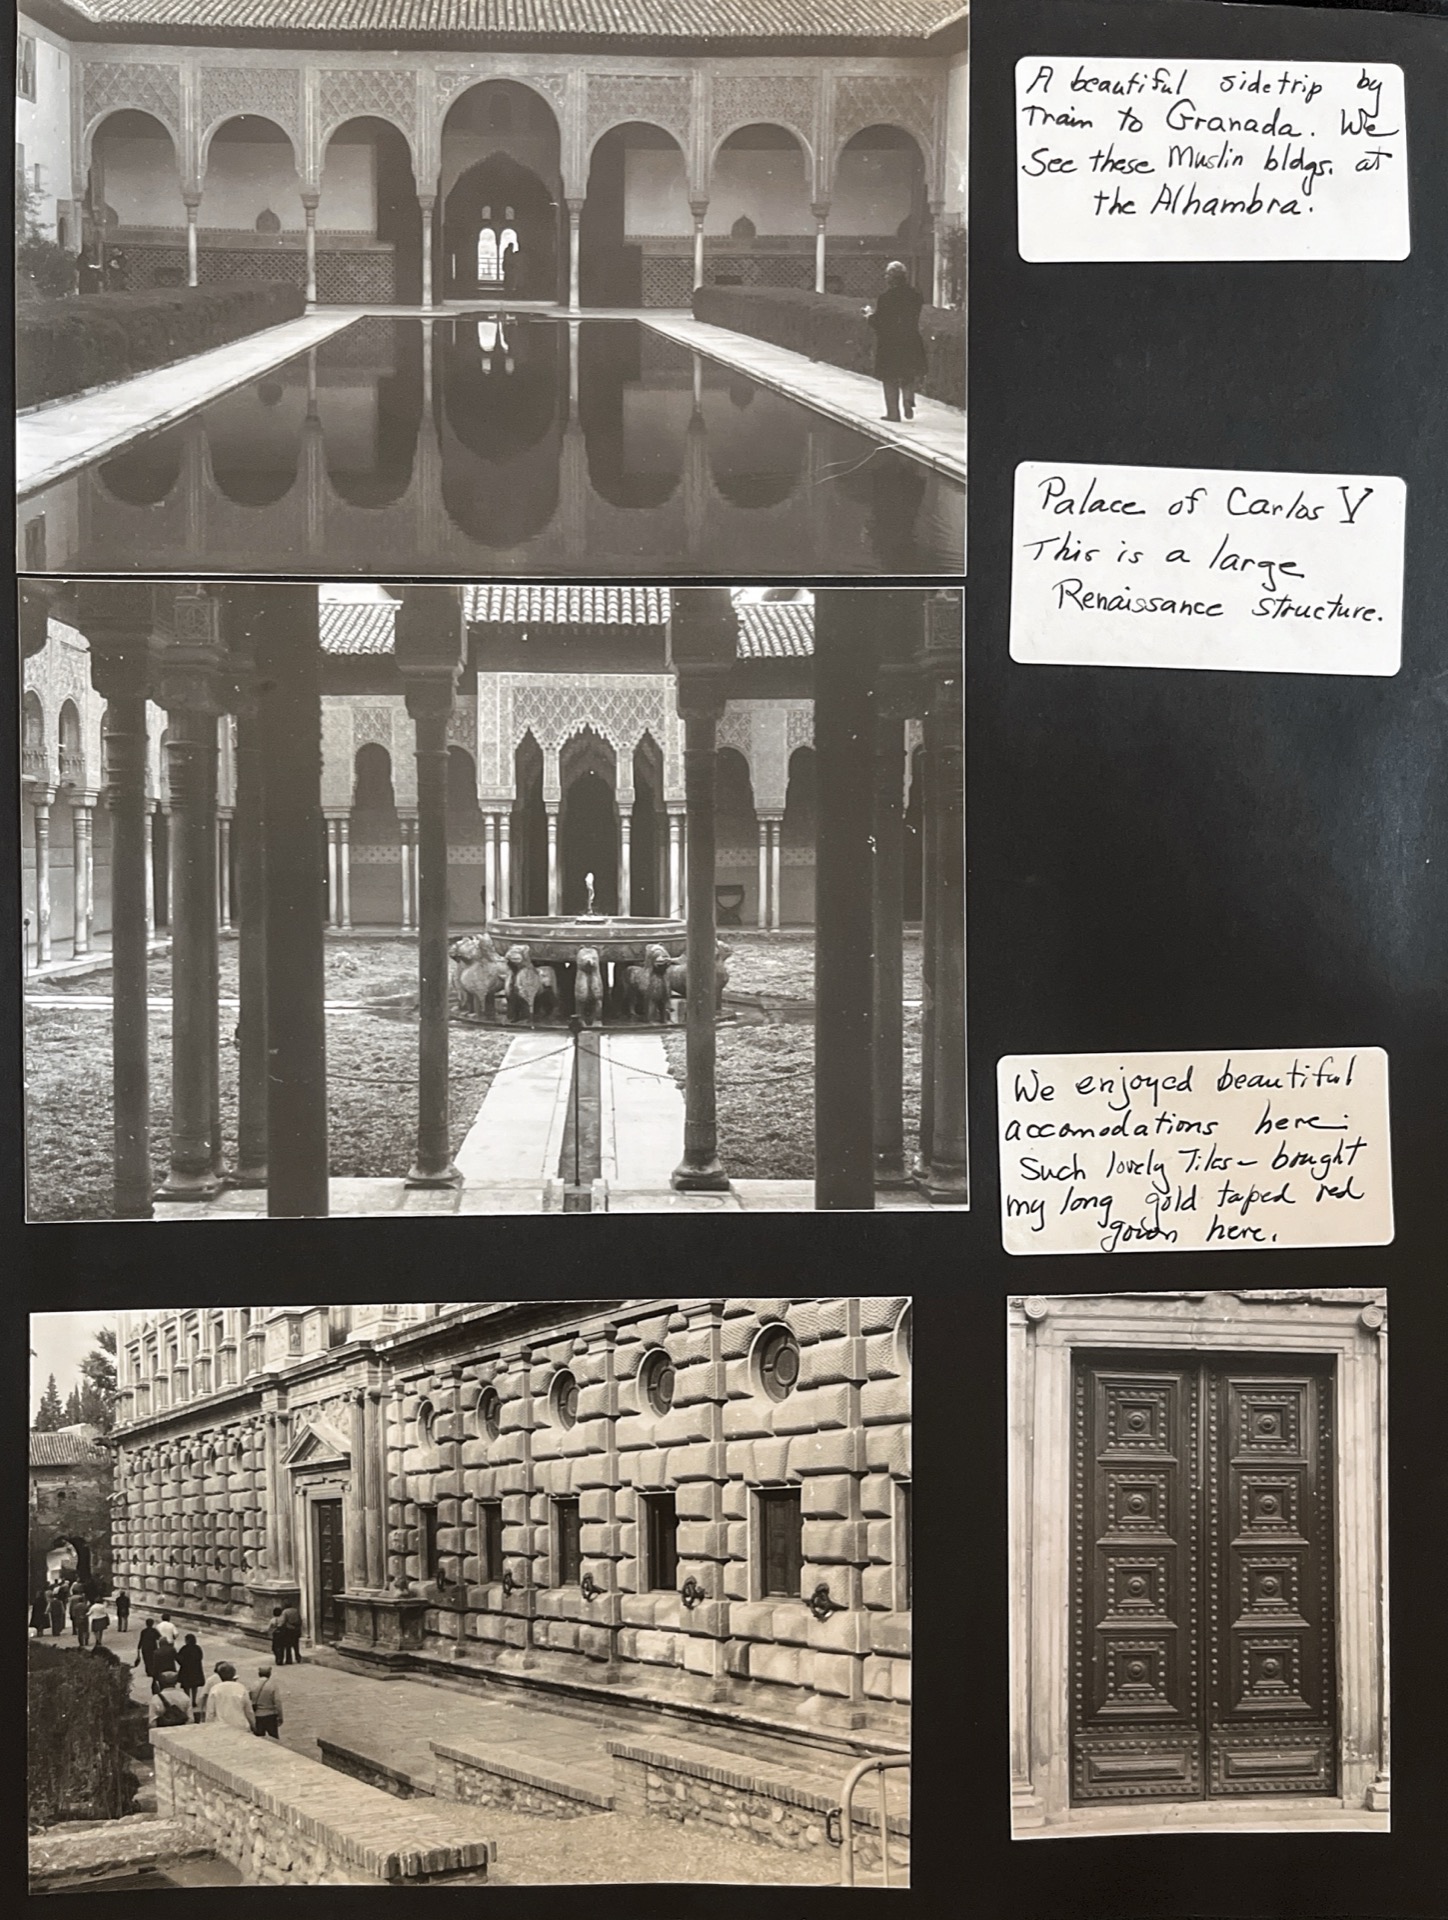 A beautiful sidetrip by
Train to Granada. We
See these Muslin bldgs. at
the Alhambra.
Palace of Carlos V
This is a large
Renaissance structure.
We enjoyed beautiful
accomodations here.
Such lovely Tiles – bought
my long gold taped red
gown here.